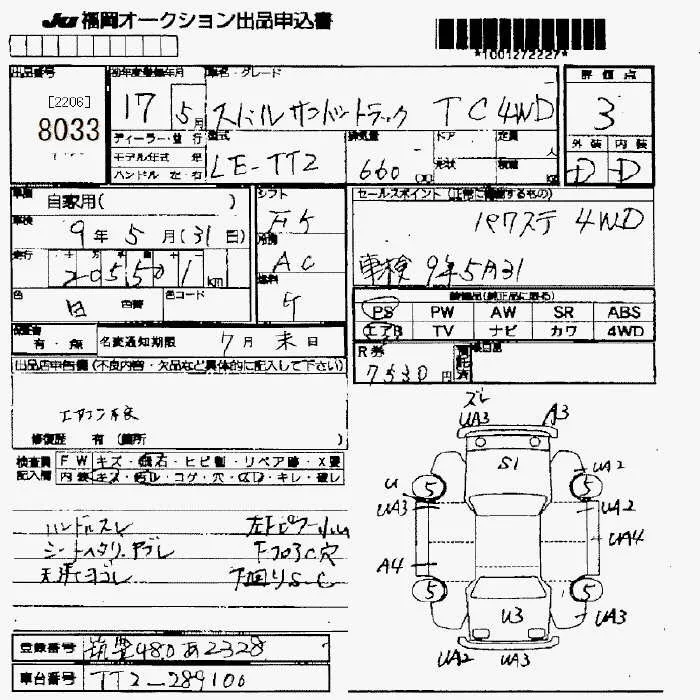 JU 福岡オークション出品申込書
*1001272227*
出品番号
[2206]
8033
初年度登録年月
17 5月
車名・グレード
スバル サンバートラック TC 4WD
ディーラー・並行
モデル年式 年
ハンドル 左・右
型式
LE-TT2
排気量
660
ドア
形状
定員
人
積載
評価点
3
外装 内装
D D
車歴
自家用( )
車検
9年 5月(31日)
走行
205501km
色
白
色替
色コード
シフト
F5
冷房
AC
燃料
セールスポイント(正常に機能するもの)
パワステ 4WD
車検 9年5月31
装備品(純正品に限る)
PS PW AW SR ABS
エアB TV ナビ カワ 4WD
保証書
有・無
名変通知期限 7月 末日
R券
7530円
出品店申告欄(不良内容・欠品など具体的に記入して下さい)
修復歴 有(箇所 )
検査員
記入欄
FW キズ・飛石・ヒビ割・リペア跡・X要
内装
ハンドルスレ
シートヘタリ、ヤブレ
天井ヨゴレ
フロアC穴
下回りS・C
ズレ
UA3
A3
S1
UA2
5
5
U
UA3
UA2
UA4
A4
5
5
U3
UA3
UA2
UA3
登録番号
筑豊480あ2328
車台番号
TT2-289100